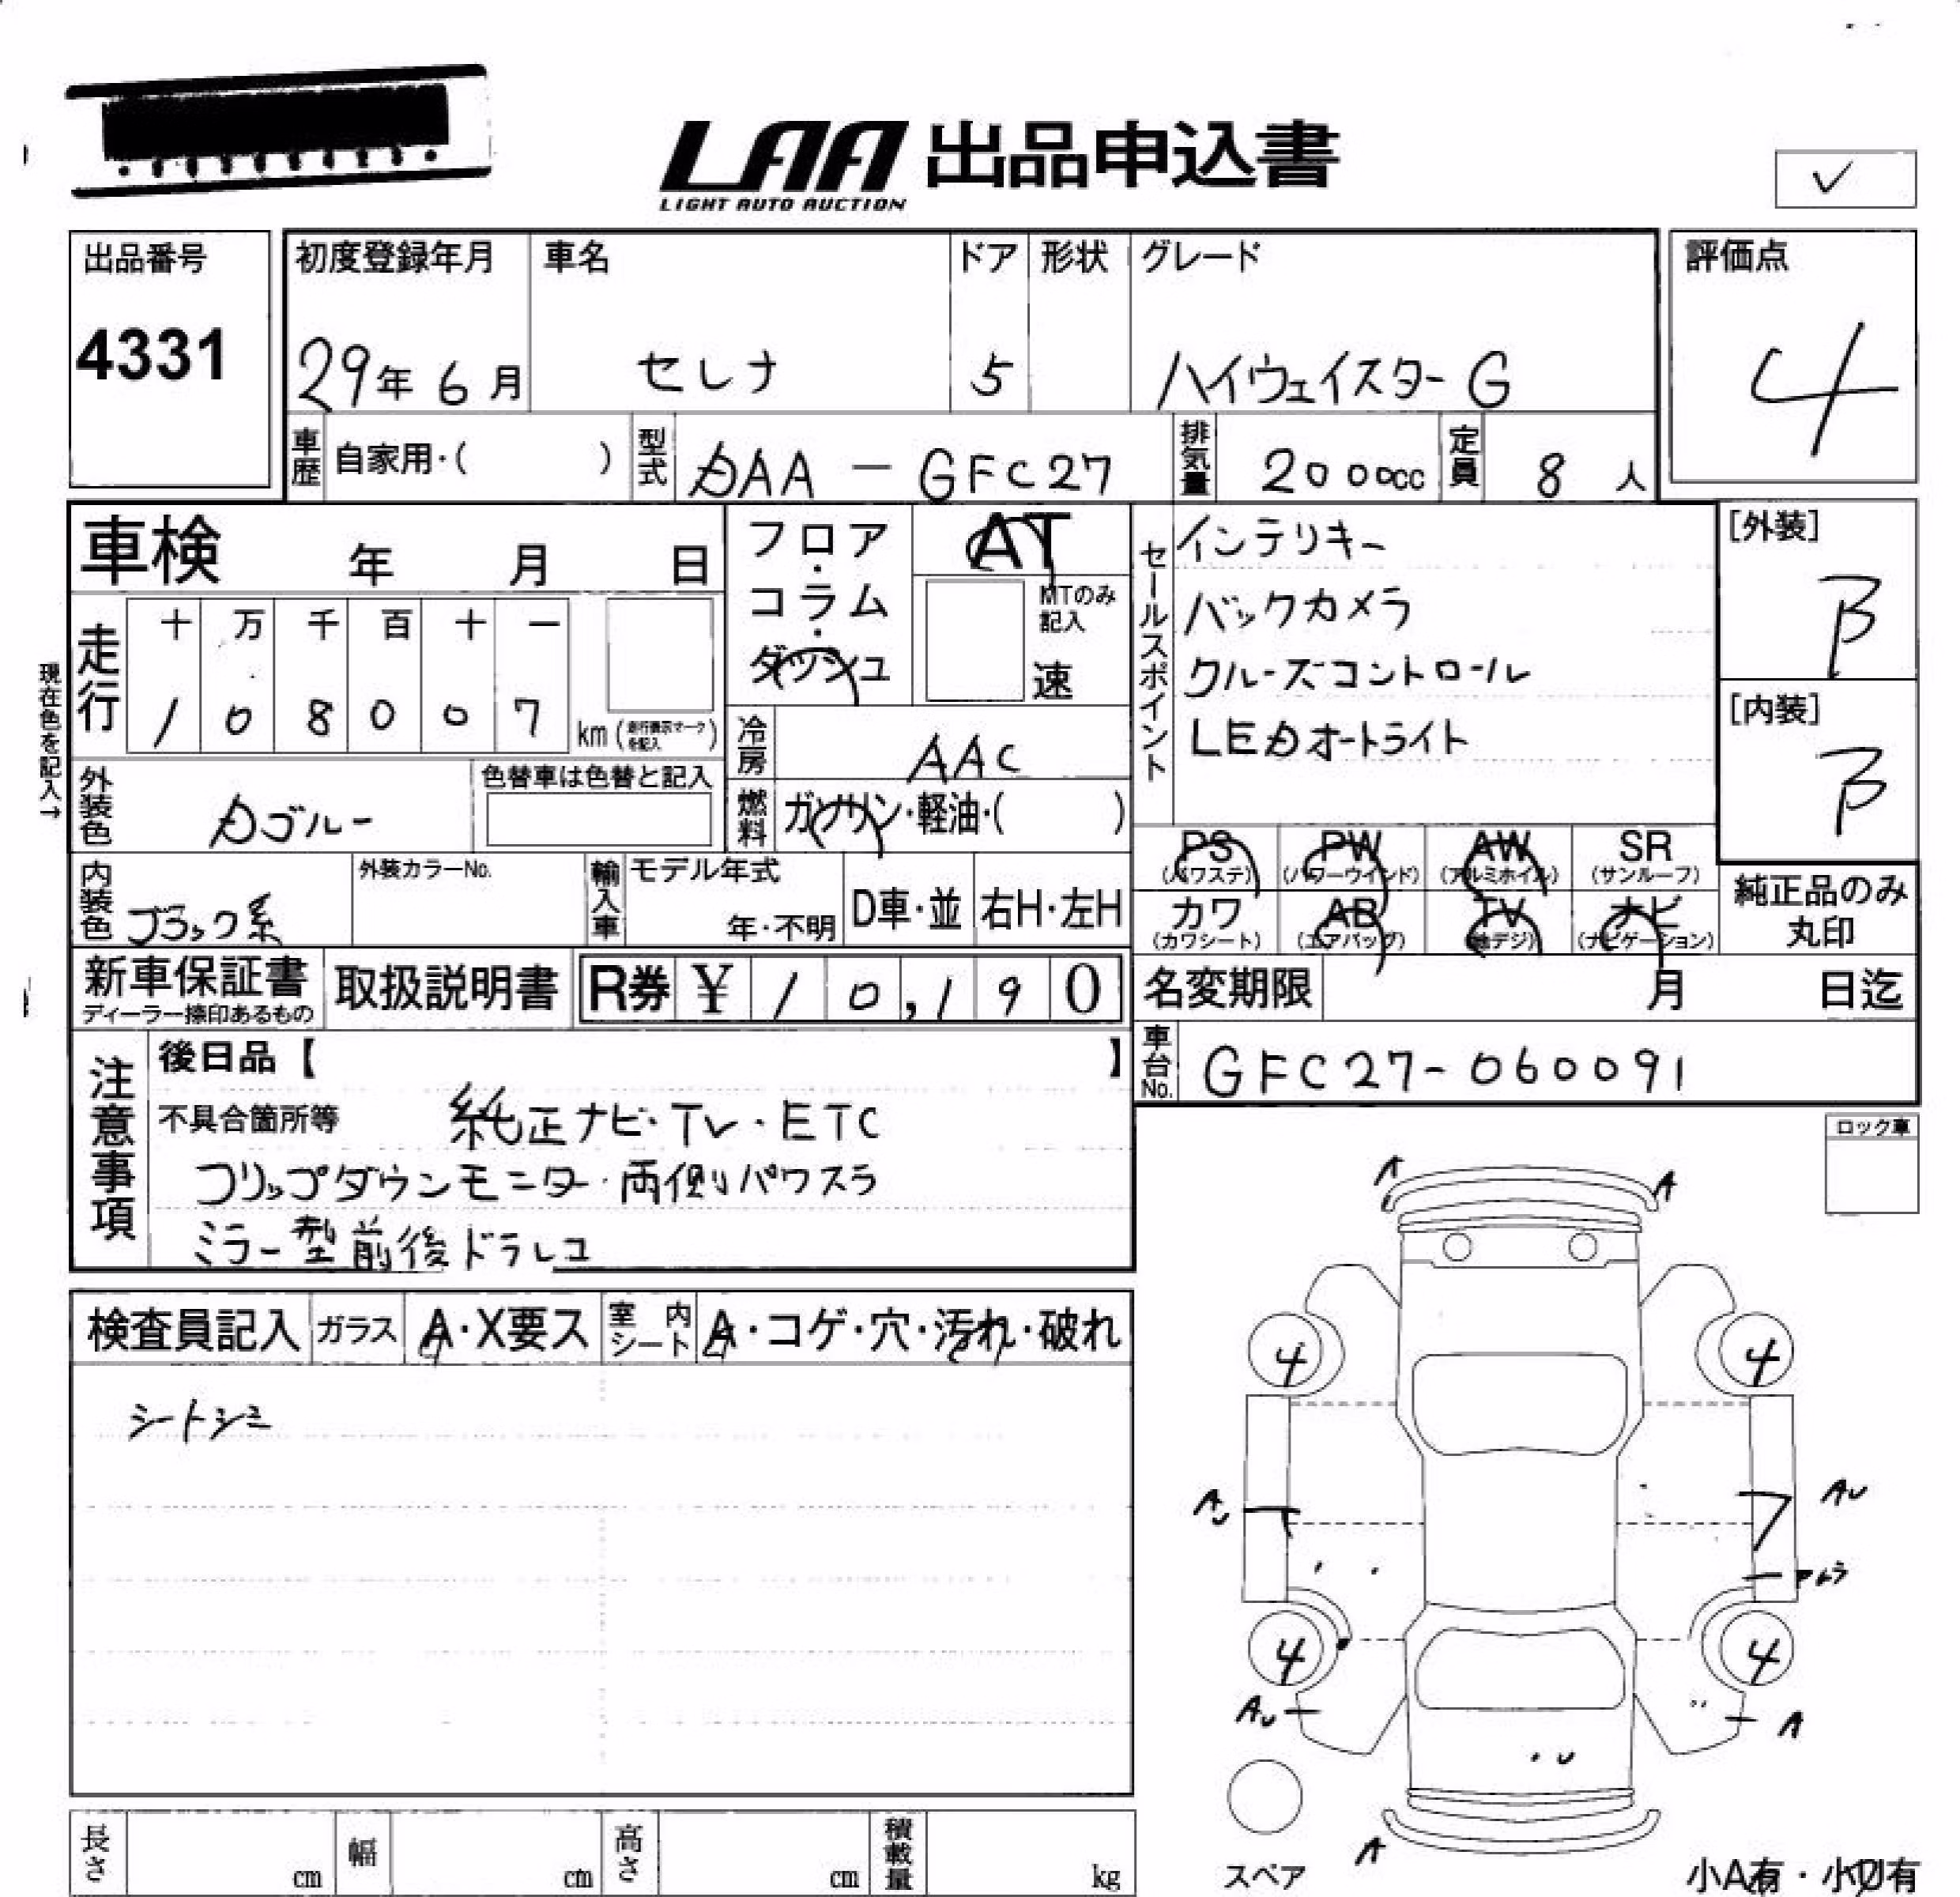 LAA 出品申込書
LIGHT AUTO AUCTION
✓
出品番号
4331
初度登録年月 車名 ドア 形状 グレード
29年 6月 セレナ 5 ハイウェイスター G
評価点
4
車歴 自家用・( ) 型式 DAA - GFC27 排気量 2000cc 定員 8 人
車検 年 月 日
フロア・コラム・ダッシュ
AT
MTのみ記入
速
セールスポイント
インテリキー
バックカメラ
クルーズコントロール
LEDオートライト
[外装]
B
[内装]
B
現在色を記入→
走行 十 万 千 百 十 一
1 0 8 0 0 7 km (走行表示マークを記入)
冷房 AAC
外装色 Dブルー 色替車は色替と記入
燃料 ガソリン・軽油・( )
内装色 ブラック系 外装カラーNo. 輸入車 モデル年式 年・不明 D車・並 右H・左H
PS (パワステ) PW (パワーウインド) AW (アルミホイル) SR (サンルーフ)
カワ (カワシート) AB (エアバッグ) TV (地デジ) ナビ (ナビゲーション)
純正品のみ丸印
新車保証書 ディーラー捺印あるもの 取扱説明書 R券 ¥ 10,190
名変期限 月 日迄
車台No. GFC27-060091
注意事項
後日品【 】
不具合箇所等 純正ナビ・TV・ETC
フリップダウンモニター・両側パワスラ
ミラー型前後ドラレコ
検査員記入 ガラス A・X要ス 室内シート A・コゲ・穴・汚れ・破れ
シートシミ
ロック車
A A
4 4
AU AU
4 4
AU A
U
A
スペア
小A有・小U有
長さ cm 幅 cm 高さ cm 積載量 kg